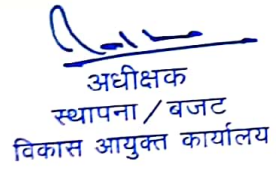 अधीक्षक
स्थापना / बजट
विकास आयुक्त कार्यालय